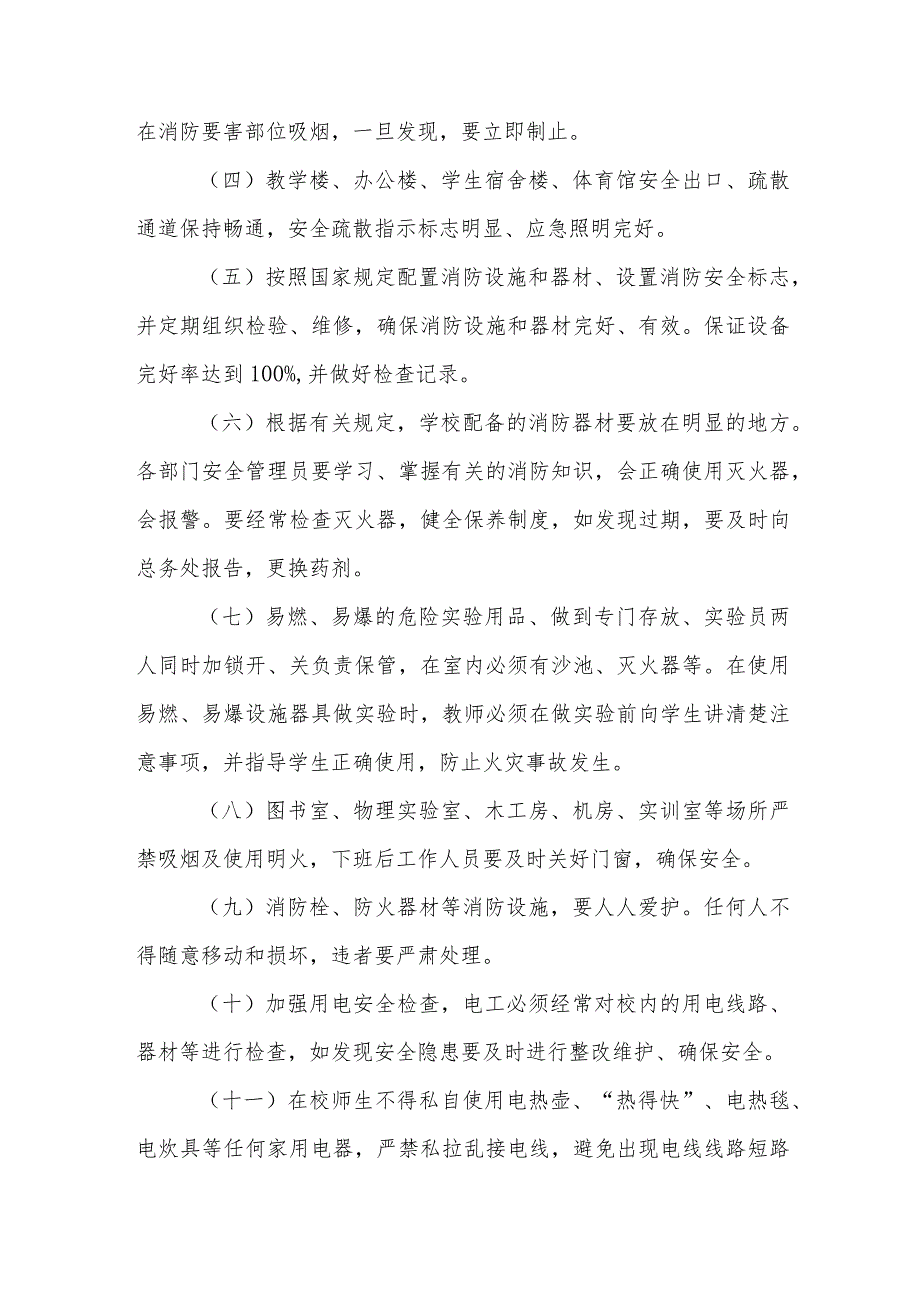 在消防要害部位吸烟，一旦发现，要立即制止。
（四）教学楼、办公楼、学生宿舍楼、体育馆安全出口、疏散
通道保持畅通，安全疏散指示标志明显、应急照明完好。
（五）按照国家规定配置消防设施和器材、设置消防安全标志，
并定期组织检验、维修，确保消防设施和器材完好、有效。保证设备
完好率达到100%,并做好检查记录。
（六）根据有关规定，学校配备的消防器材要放在明显的地方。
各部门安全管理员要学习、掌握有关的消防知识，会正确使用灭火器，
会报警。要经常检查灭火器，健全保养制度，如发现过期，要及时向
总务处报告，更换药剂。
（七）易燃、易爆的危险实验用品、做到专门存放、实验员两
人同时加锁开、关负责保管，在室内必须有沙池、灭火器等。在使用
易燃、易爆设施器具做实验时，教师必须在做实验前向学生讲清楚注
意事项，并指导学生正确使用，防止火灾事故发生。
（八）图书室、物理实验室、木工房、机房、实训室等场所严
禁吸烟及使用明火，下班后工作人员要及时关好门窗，确保安全。
（九）消防栓、防火器材等消防设施，要人人爱护。任何人不
得随意移动和损坏，违者要严肃处理。
（十）加强用电安全检查，电工必须经常对校内的用电线路、
器材等进行检查，如发现安全隐患要及时进行整改维护、确保安全。
（十一）在校师生不得私自使用电热壶、“热得快”、电热毯、
电炊具等任何家用电器，严禁私拉乱接电线，避免出现电线线路短路